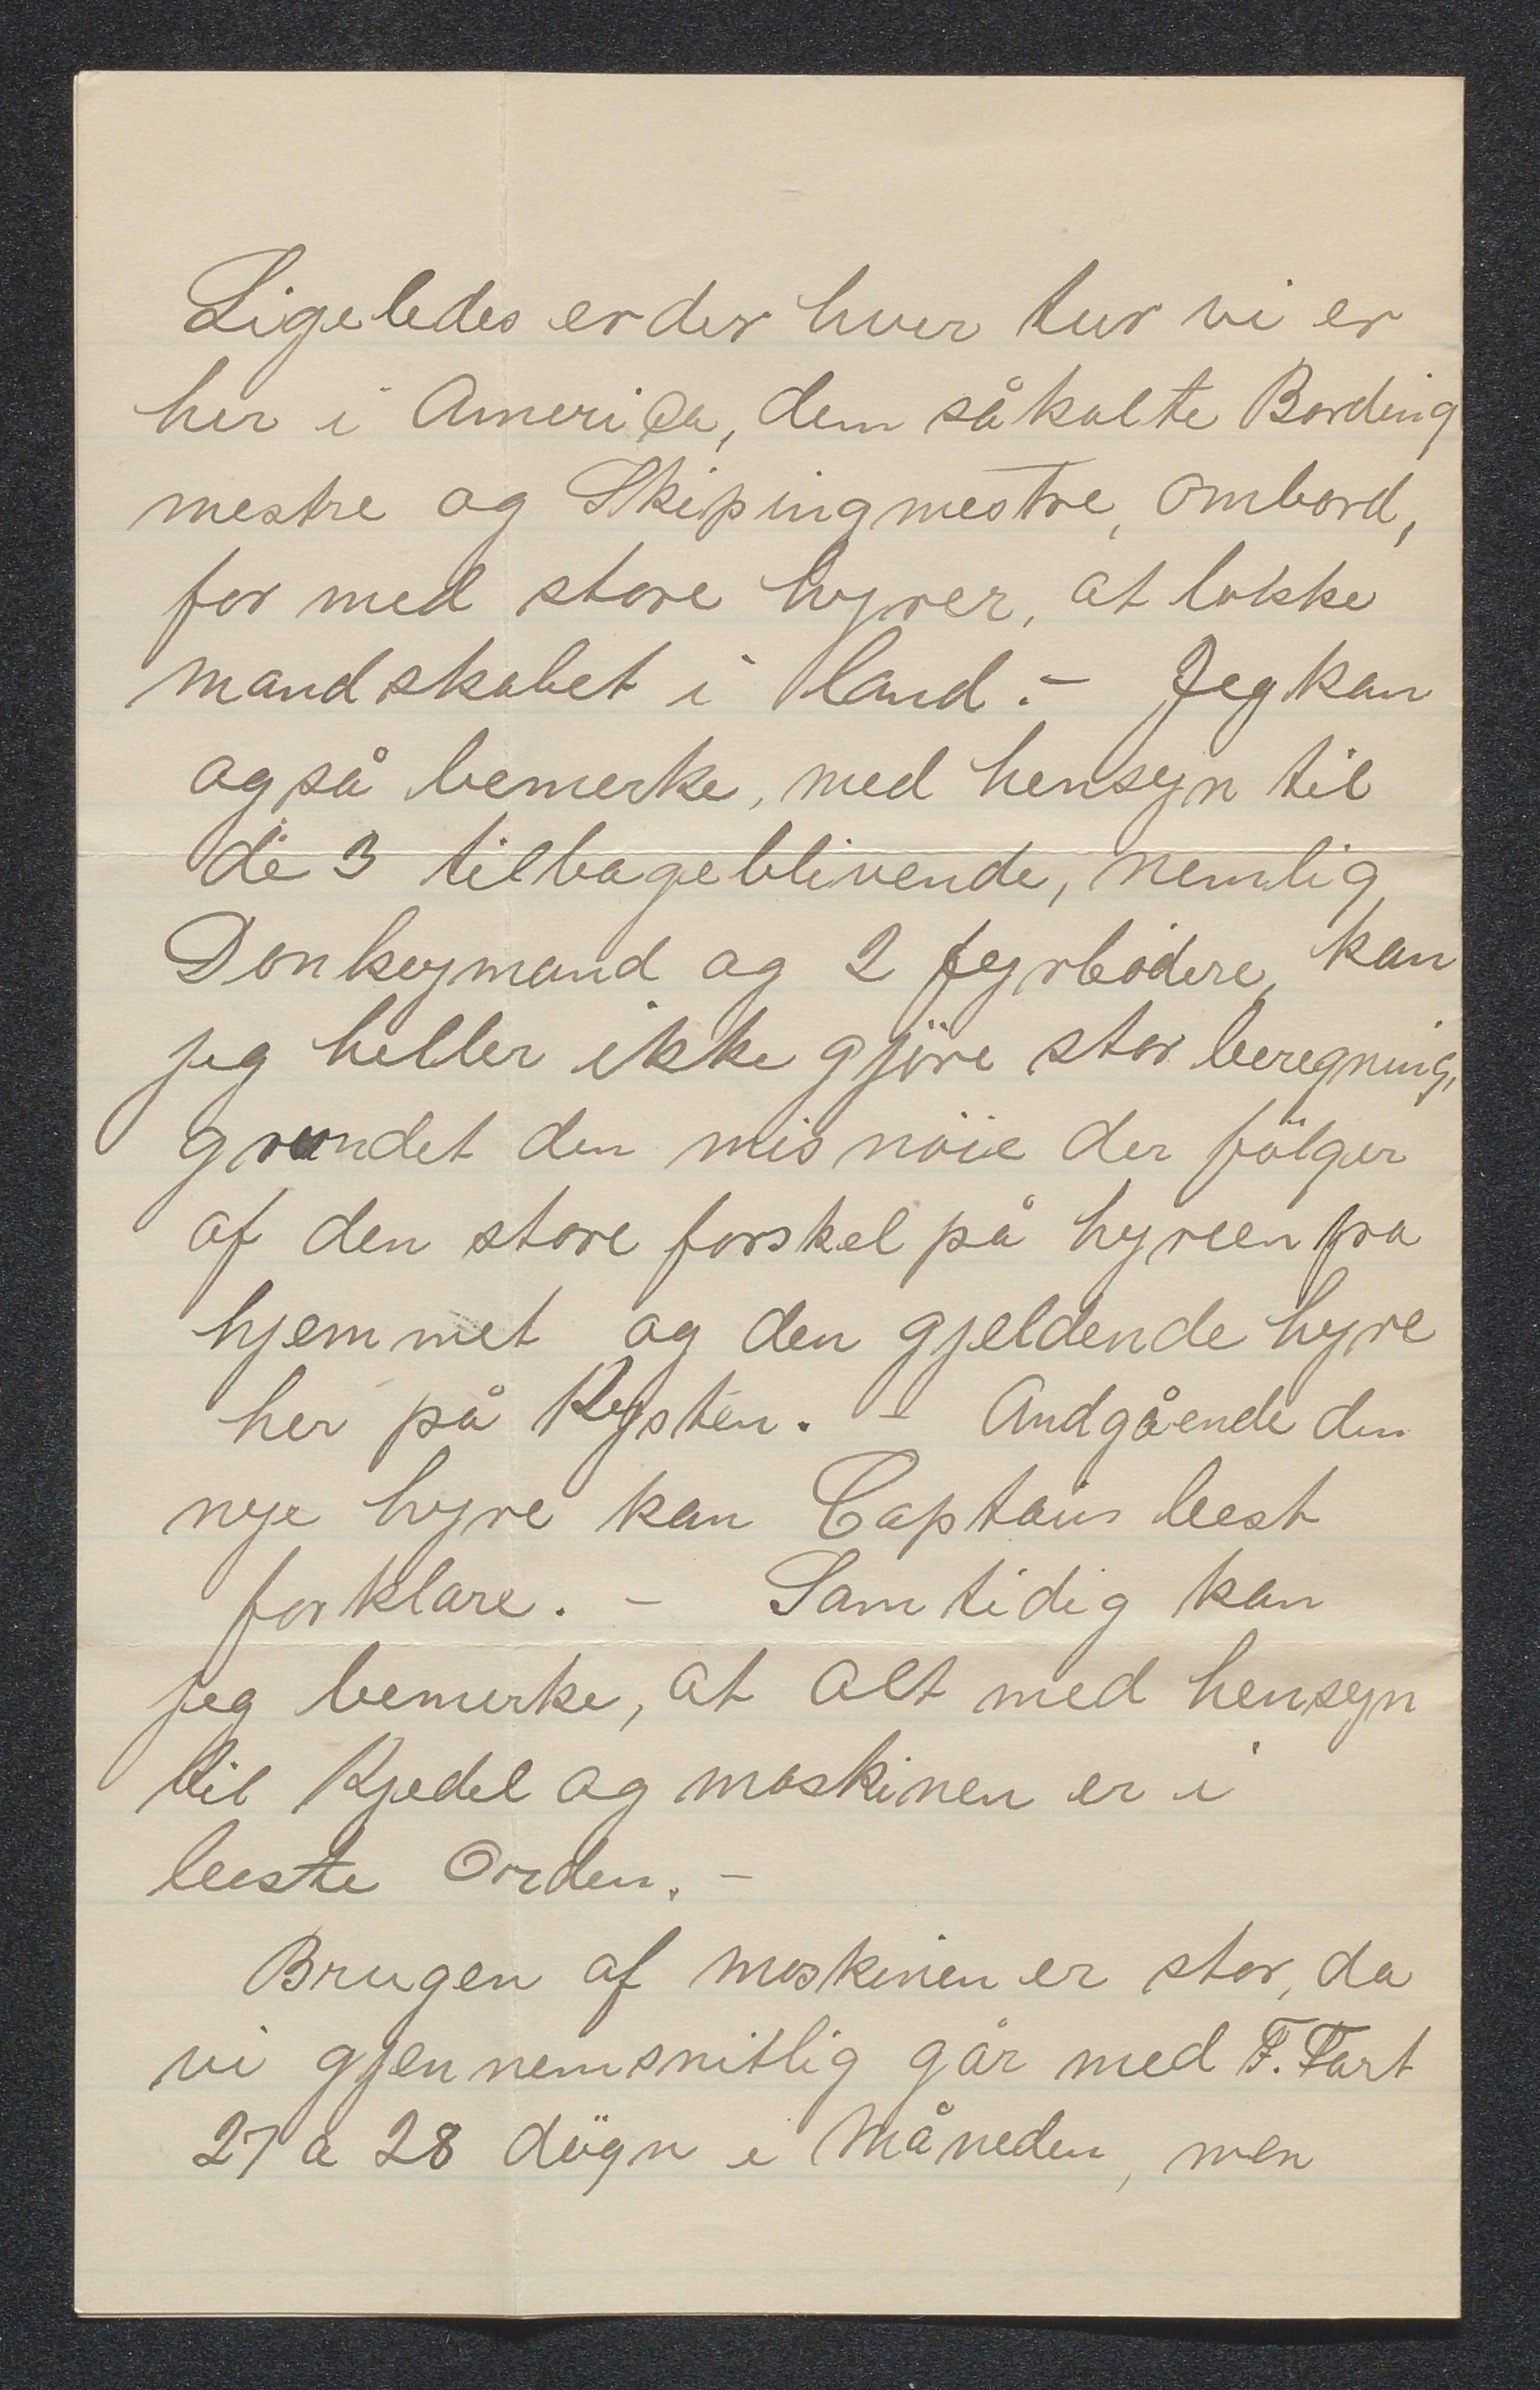 Ligeledes er der hver tur vi er
her i America, dem såkalte Bording
mestre og Skipingmestre, ombord,
for med store hyrer, at lokke
mandskabet i land. - Jeg kan
også bemerke, med hensyn til
de 3 tilbageblivende, nemlig
Donkeymand og 2 fyrbödere, kan
jeg heller ikke gjöre stor beregning,
grundet den misnöie der fölger
af den store forskel på hyreen fra
hjemmet og den gjeldende hyre
her på Kysten. - Andgående den
nye hyre kan Captain best
forklare. - Samtidig kan
jeg bemerke, at alt med hensyn
til Kjedel og maskinen er i
beste Orden. -
Brugen af maskinen er stor, da
vi gjennemsnitlig går med F. Fart
27 a 28 dögn i Måneden, men